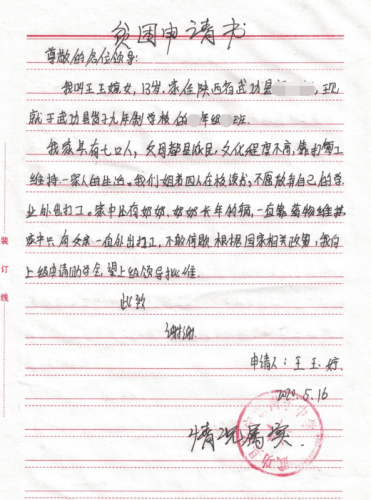 贫困申请书
尊敬的各位领导:
我叫王玉婷女,13岁,家住陕西省武功县 ,现
就于武功县贺子九年制学校 的 年级 班.
我家共有七口人,父母都是农民,文化程度不高,靠打零工
维持一家人的生活。我们姐弟四人在校读书,不愿放弃自己的学
业外出打工。家中还有奶奶,奶奶长年的病,一直靠药物维其
家中只有父亲一直外出打工,不敢停歇.根据国家相关政策,我向
上级申请助学金,望上级领导批准.
此致
谢谢
申请人:王玉婷
2020.5.16
情况属实.
装
订
线